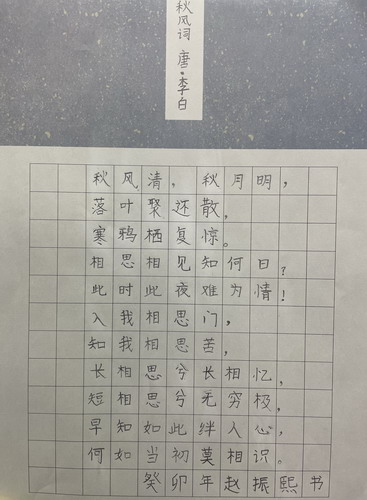 秋风词 唐·李白
秋风清，秋月明，
落叶聚还散，
寒鸦栖复惊。
相思相见知何日？
此时此夜难为情！
入我相思门，
知我相思苦，
长相思兮长相忆，
短相思兮无穷极，
早知如此绊人心，
何如当初莫相识。
癸卯年赵振熙书